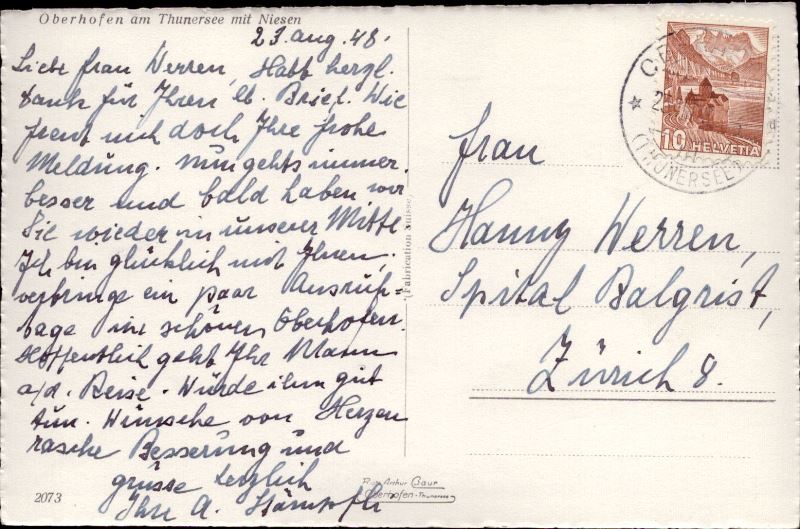 Oberhofen am Thunersee mit Niesen
23. Aug. 48.
Liebe Frau Werren, Habt hergl.
Dank für Ihren lb. Brief. Wie
freut mich doch Ihre frohe
Meldung. Nun gehts immer
besser und bald haben wir
Sie wieder in unserer Mitte
Ich bin glücklich mit Ihnen,
verbringe ein paar Ausruh-
tage im schönen Oberhofen.
Hoffentlich geht Ihr Mann
a/d. Reise. Würde ihm gut
tun. Wünsche von Herzen
rasche Besserung und
grüsse herzlich
Ihre A. Stämpfli
2073
(Fabrication suisse)
Arthur Baur
Oberhofen-Thunersee
10 HELVETIA
(THUNERSEE)
Frau
Hanny Werren,
Spital Balgrist,
Zürich 8.